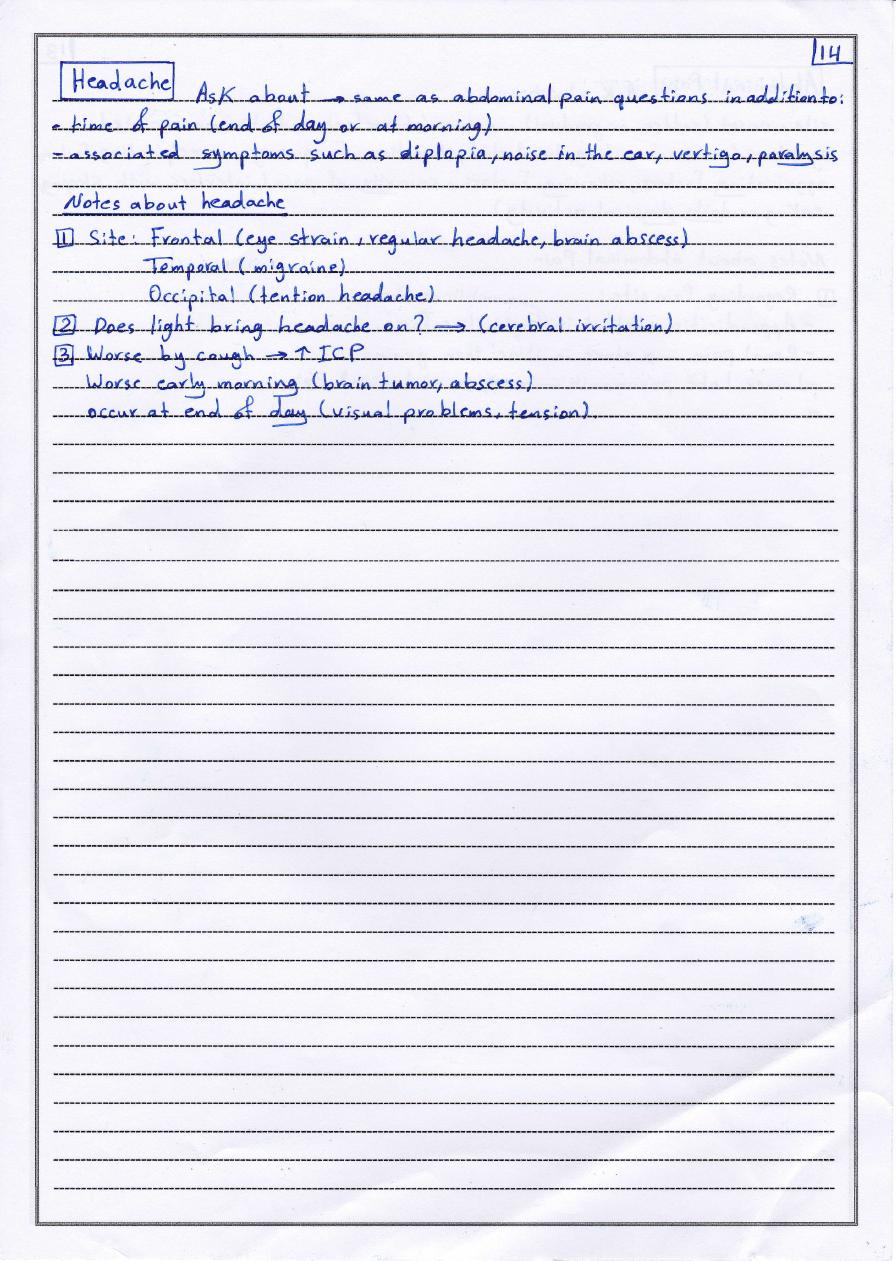 14
Headache Ask about → same as abdominal pain questions in addition to:
- time of pain (end of day or at morning)
- associated symptoms such as diplopia, noise in the ear, vertigo, paralysis
Notes about headache
1 Site: Frontal (eye strain, regular headache, brain abscess)
Temporal (migraine)
Occipital (tention headache)
2 Does light bring headache on? → (cerebral irritation)
3 Worse by cough → ↑ ICP
Worse early morning (brain tumor, abscess)
occur at end of day (visual problems, tension).